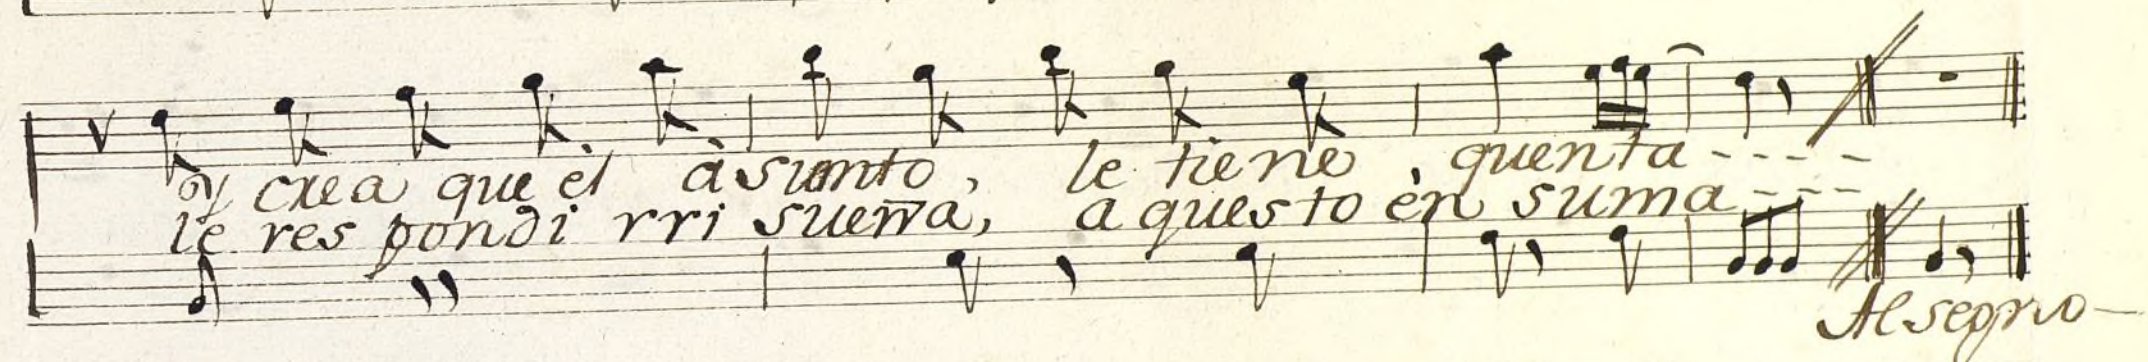 y crea que èl àsunto, le tiene, quenta - - - -
le res pondi rri sueña, a questo èn suma - - - -
Al segno —